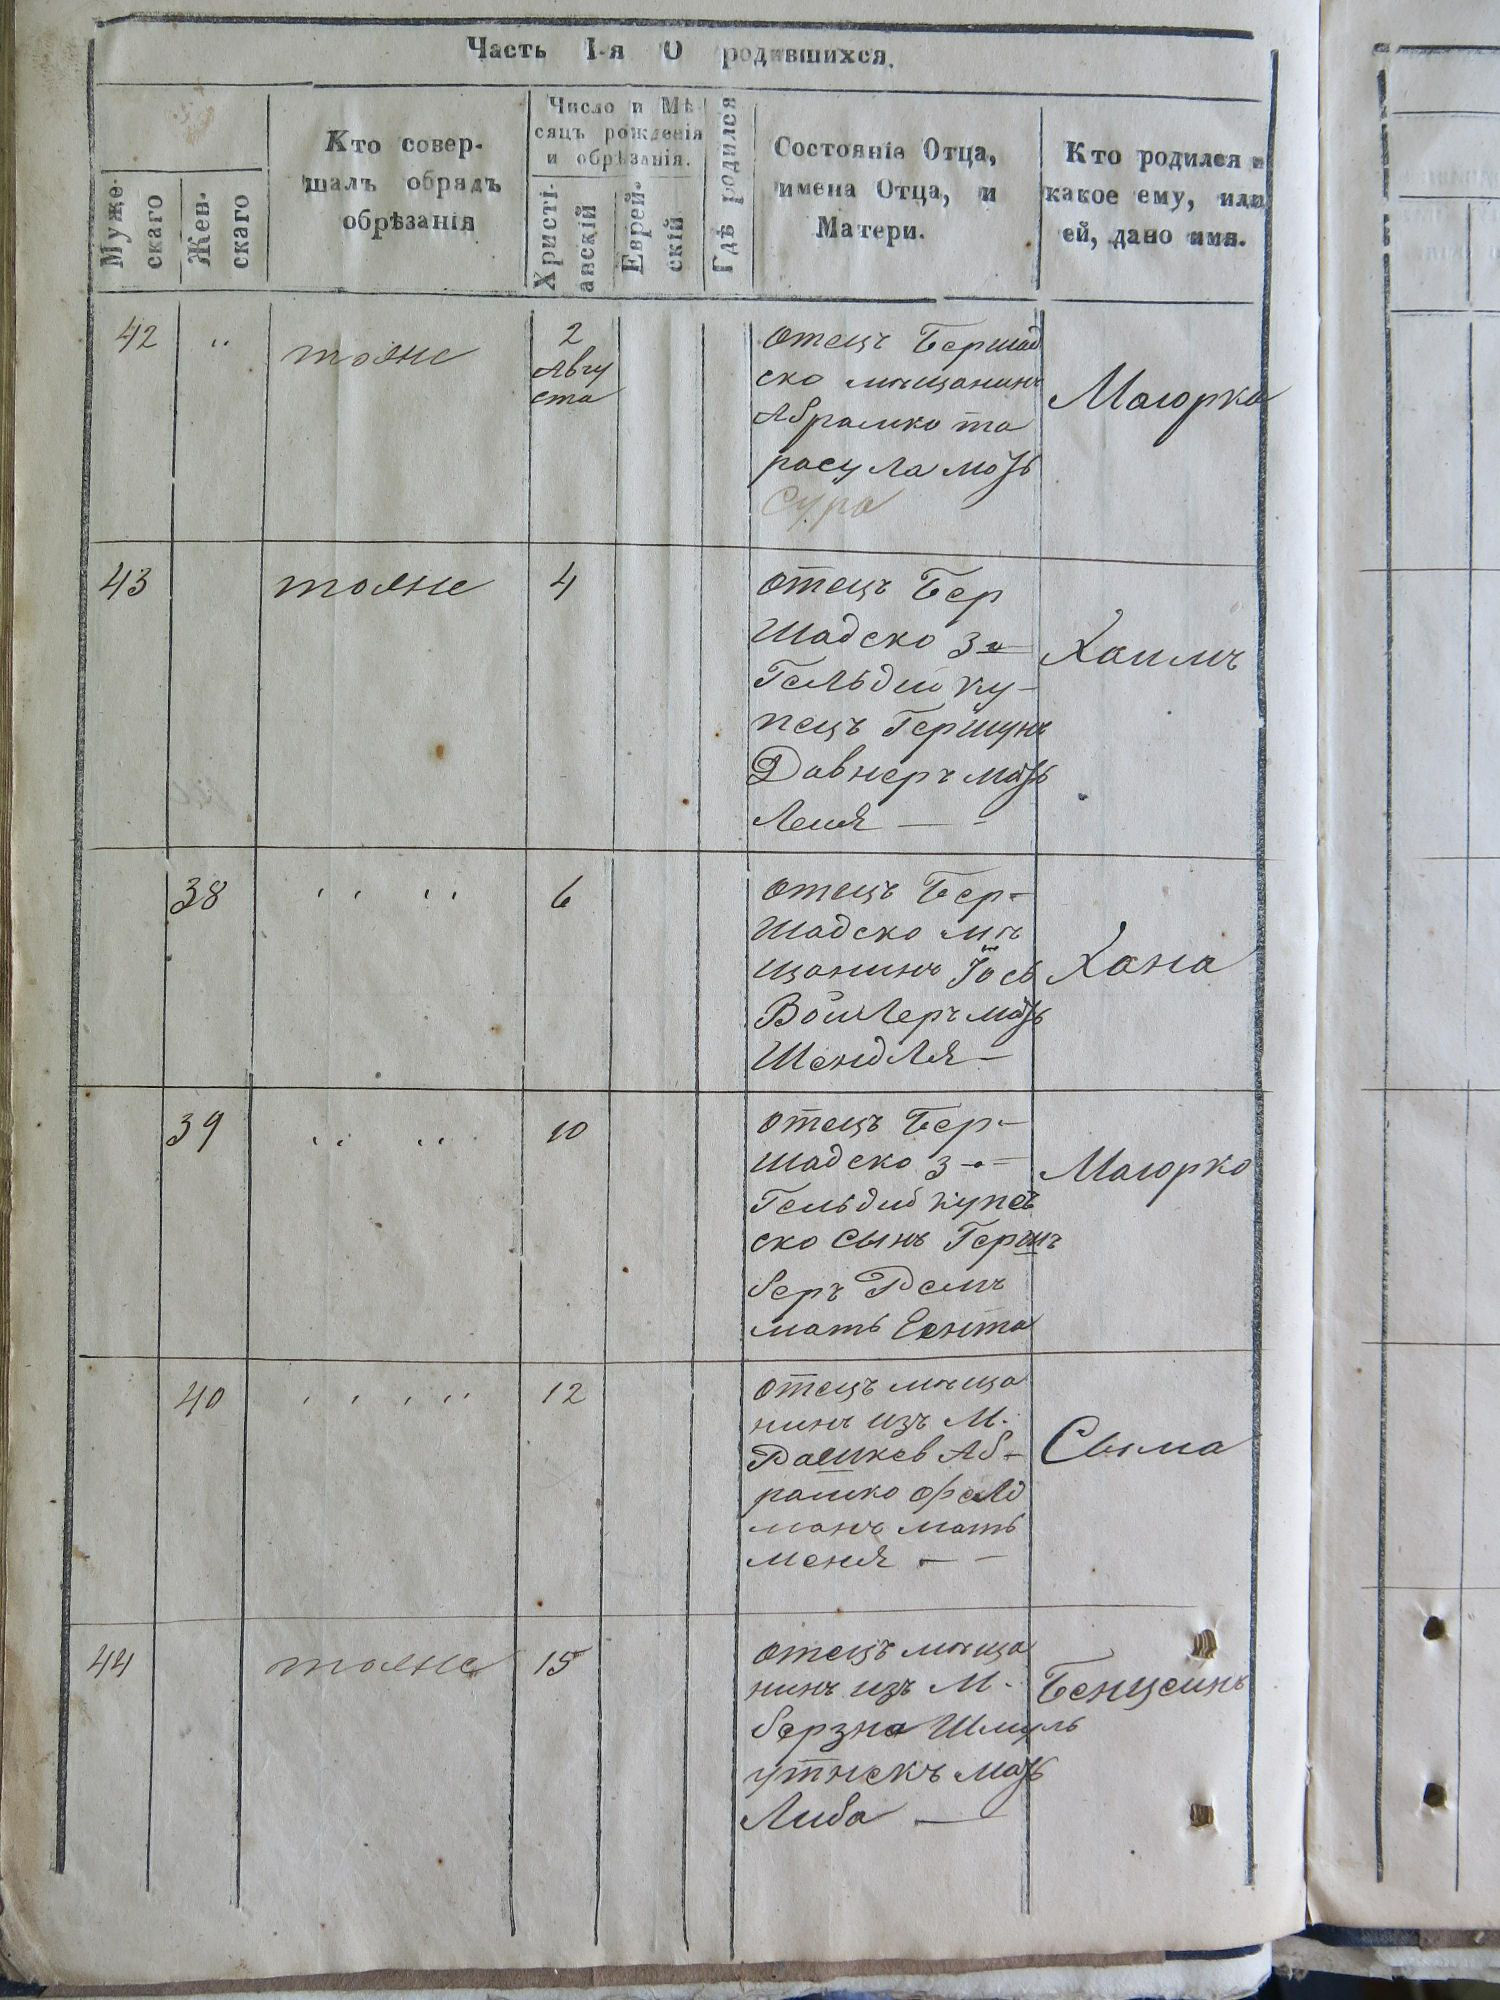 Часть I-я О родившихся.
Муже-
скаго
Жен-
скаго
Кто совер-
шалъ обрядъ
обрѣзанія
Число и Мѣ-
сяцъ рожденія
и обрѣзанія.
Христі-
анскій
Еврей-
скій
Гдѣ родился
Состояніе Отца,
имена Отца, и
Матери.
Кто родился и
какое ему, или
ей, дано имя.
42
тоже
2
Авгу
ста
отецъ Бершад
ско мѣщанинъ
Абрамко та
расула мать
Сура
Маюрка
43
тоже
4
отецъ Бер
шадско 3-й
Гельдіи ку-
пецъ Гершунъ
Давнеръ мать
Леия
Хаимъ
38
6
отецъ Бер-
шадско мѣ
щанинъ Іось
Войлеръ мать
Шендля
Хана
39
10
отецъ Бер-
шадско 3-
Гельдіи купе
ско сынъ Герш
беръ
мать Еента
Маюрка
40
12
отецъ мѣща
нинъ изъ М.
Рашков Аб-
рамко Фелд
манъ мать
Меня
Сыма
44
тоже
15
отецъ мѣща
нинъ изъ М.
берзна Шмуль
мать
Либа
Бенцеинъ